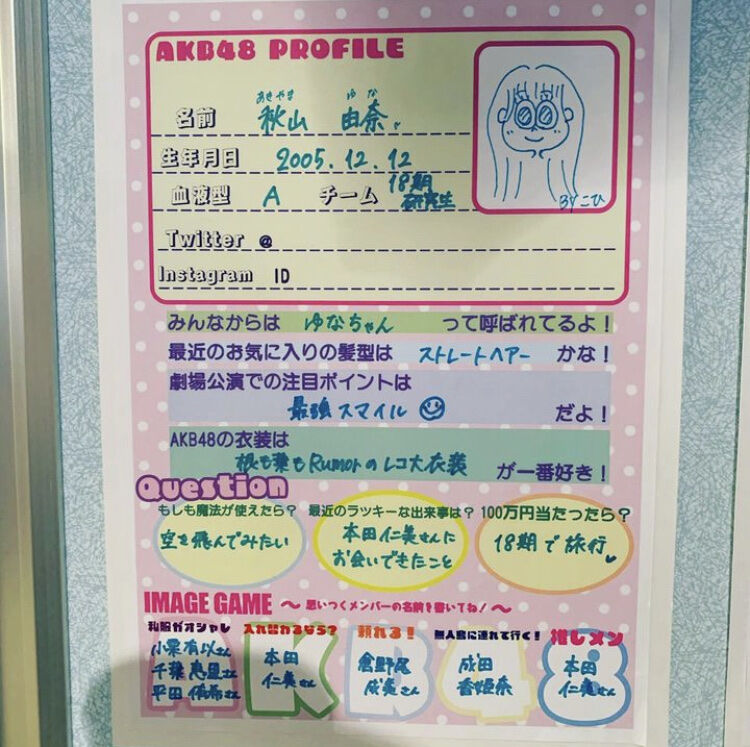 AKB48 PROFILE
あきやま ゆな
名前 秋山 由奈
生年月日 2005.12.12
血液型 A チーム 18期
研究生
Twitter @
Instagram ID
みんなからは ゆなちゃん って呼ばれてるよ!
最近のお気に入りの髪型は ストレートヘアー かな!
劇場公演での注目ポイントは
最強スマイル だよ!
AKB48の衣装は
根も葉もRumorのレコ大衣装 が一番好き!
Question
もしも魔法が使えたら? 最近のラッキーな出来事は? 100万円当たったら?
空を飛んでみたい
本田仁美さんに
お会いできたこと
18期で旅行
IMAGE GAME 〜思いつくメンバーの名前を書いてね!〜
私服がオシャレ 入れ替わるなら? 頼れる! 無人島に連れて行く! 推しメン
小栗有以さん
千葉恵里さん
平田侑希さん
本田
仁美さん
倉野尾
成美さん
成田
香姫奈
本田
仁美さん
AKB48